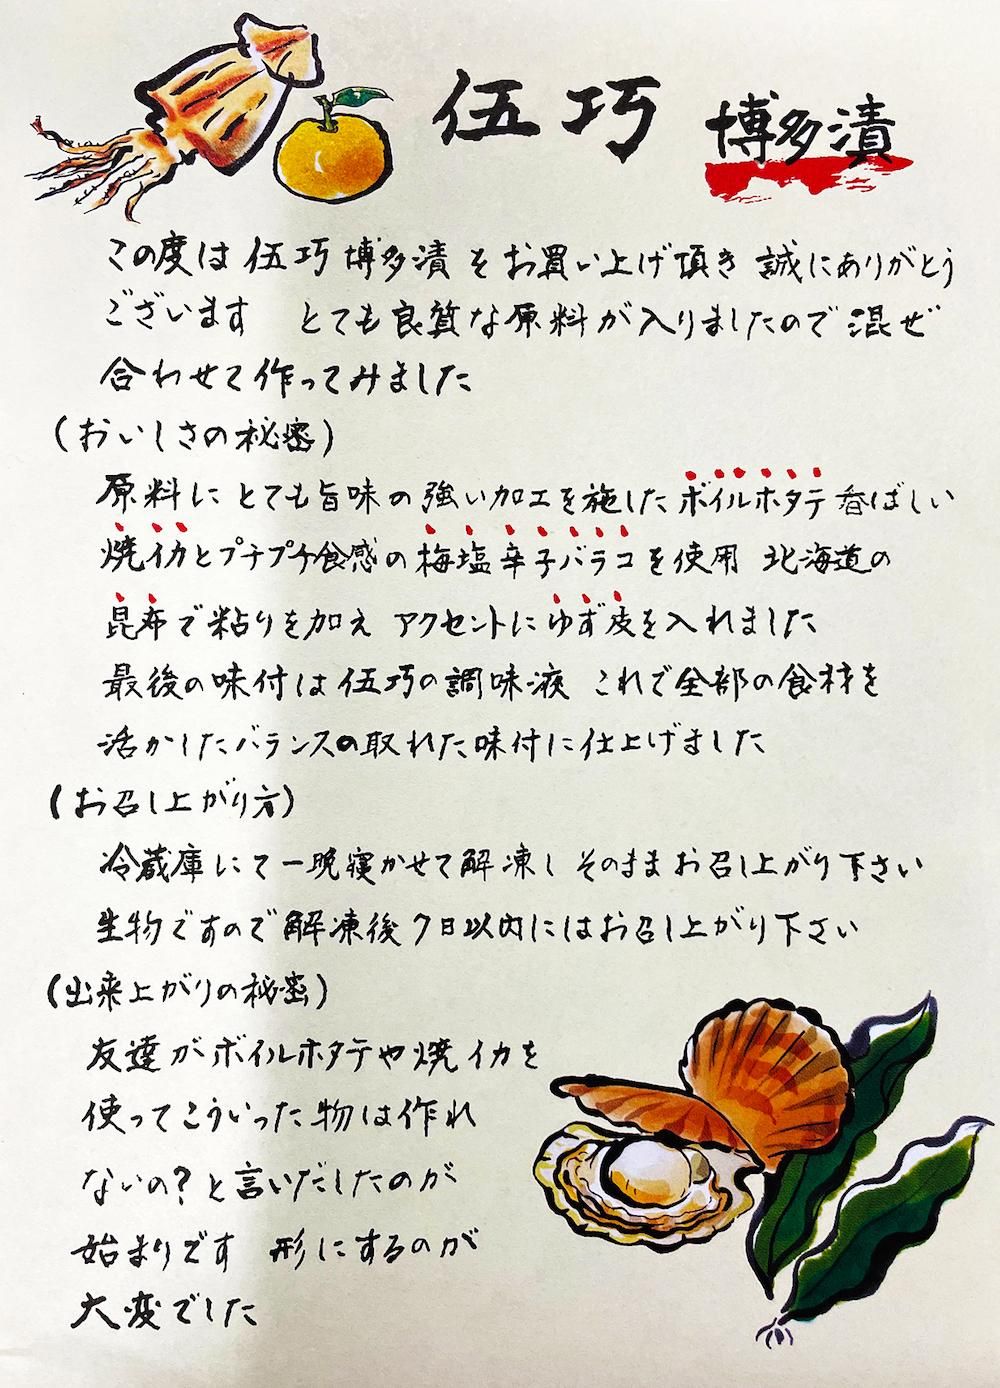 伍巧 博多漬
この度は 伍巧 博多漬 をお買い上げ頂き 誠にありがとう
ございます とても良質な原料が入りましたので 混ぜ
合わせて作ってみました
(おいしさの秘密)
原料に とても旨味の強い加工を施したボイルホタテ 香ばしい
焼イカとプチプチ食感の梅塩辛子バラコを使用 北海道の
昆布で粘りを加え アクセントにゆず皮を入れました
最後の味付は伍巧の調味液 これで全部の食材を
活かしたバランスの取れた味付に仕上げました
(お召し上がり方)
冷蔵庫にて一晩寝かせて解凍し そのままお召し上がり下さい
生物ですので解凍後7日以内にはお召し上がり下さい
(出来上がりの秘密)
友達がボイルホタテや焼イカを
使ってこういった物は作れ
ないの?と言いだしたのが
始まりです 形にするのが
大変でした